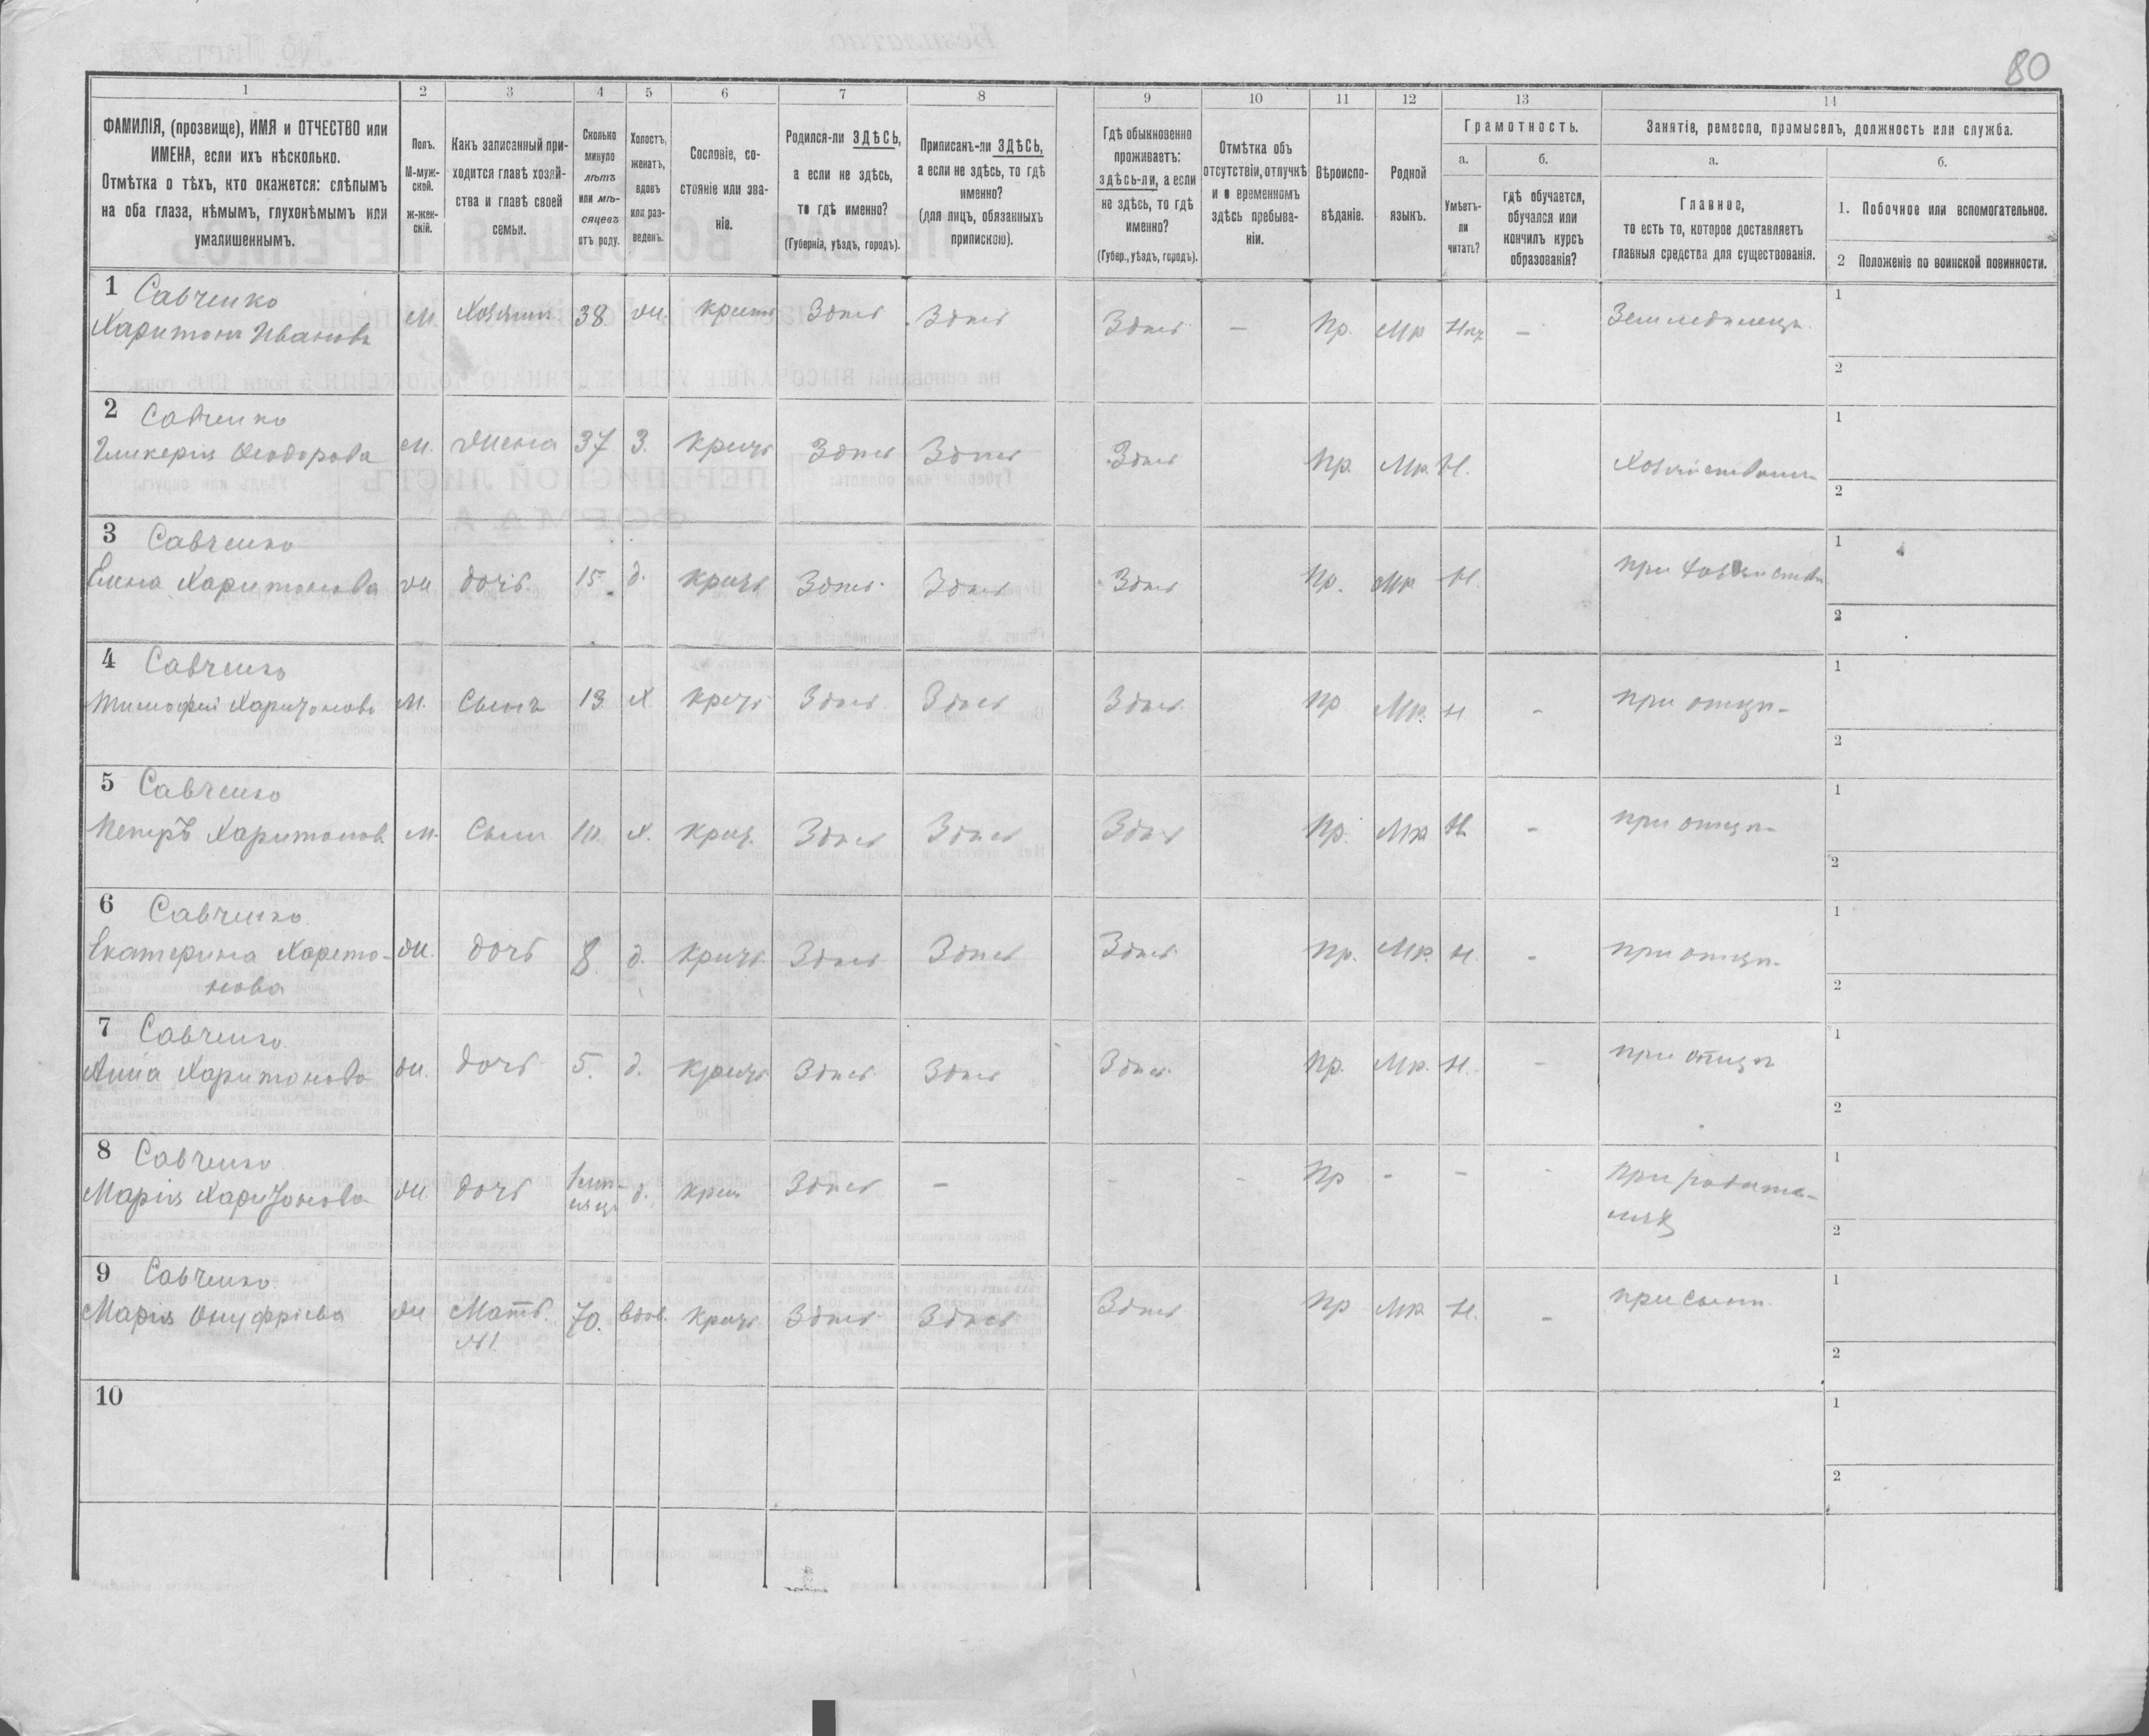 80
1 2 3 4 5 6 7 8 9 10 11 12 13 14
ФАМИЛІЯ, (прозвище), ИМЯ и ОТЧЕСТВО или
ИМЕНА, если ихъ нѣсколько.
Отмѣтка о тѣхъ, кто окажется: слѣпымъ
на оба глаза, нѣмымъ, глухонѣмымъ или
умалишеннымъ.
Полъ.
М-муж-
ской.
ж-жен-
скій.
Какъ записанный при-
ходится главѣ хозяй-
ства и главѣ своей
семьи.
Сколько
минуло
лѣтъ
или мѣ-
сяцевъ
отъ роду.
Холостъ,
женатъ,
вдовъ
или раз-
веденъ.
Сословіе, со-
стояніе или зва-
ніе.
Родился-ли ЗДѢСЬ,
а если не здѣсь,
то гдѣ именно?
(Губернія, уѣздъ, городъ).
Приписанъ-ли ЗДѢСЬ,
а если не здѣсь, то гдѣ
именно?
(для лицъ, обязанныхъ
припискою).
Гдѣ обыкновенно
проживаетъ:
здѣсь-ли, а если
не здѣсь, то гдѣ
именно?
(Губер., уѣздъ, городъ).
Отмѣтка объ
отсутствіи, отлучкѣ
и о временномъ
здѣсь пребыва-
ніи.
Вѣроиспо-
вѣданіе.
Родной
языкъ.
Грамотность.
а.
Умѣетъ-
ли
читать?
б.
гдѣ обучается,
обучался или
кончилъ курсъ
образованія?
Занятіе, ремесло, промыселъ, должность или служба.
а.
Главное,
то есть то, которое доставляетъ
главныя средства для существованія.
б.
1. Побочное или вспомогательное.
2 Положеніе по воинской повинности.
1 Савченко
Харитонъ Ивановъ М. Хозяинъ 38 ж. крест Здѣсь Здѣсь Здѣсь — Пр. Мр — Земледѣлецъ
1
2
2 Савченко
Гликерія Феодорова Жена 37 З. Здѣсь Здѣсь Здѣсь Пр. Мр. Н.
1
2
3 Савченко
Елена Харитонова ж дочь 15 д. Здѣсь Здѣсь Здѣсь Пр. Мр Н. при хозяйствѣ
1
2
4 Савченко
Тимофей Харитоновъ М. Сынъ 13 Х Здѣсь Здѣсь Здѣсь Пр Мр. Н - при отцѣ
1
2
5 Савченко
Петръ Харитоновъ М. Сынъ Х. Здѣсь Здѣсь Здѣсь Пр. Мр Н - при отцѣ
1
2
6 Савченко
Екатерина Харето- ж. дочь 8. д. Здѣсь Здѣсь Здѣсь Пр. Мр. Н. - при отцѣ
нова
1
2
7 Савченко
Анна Харитонова ж. дочь 5. д. Здѣсь Здѣсь Здѣсь Пр. Мр. Н. - при отцѣ
1
2
8 Савченко
Марія Харитонова ж. дочь д. Здѣсь - - - Пр - - - при родите-
ляхъ
1
2
9 Савченко
Марія Онуфріева ж Мать 70. вдов. Здѣсь Здѣсь Здѣсь Пр Мр Н. - при сынѣ
№1
1
2
10
1
2